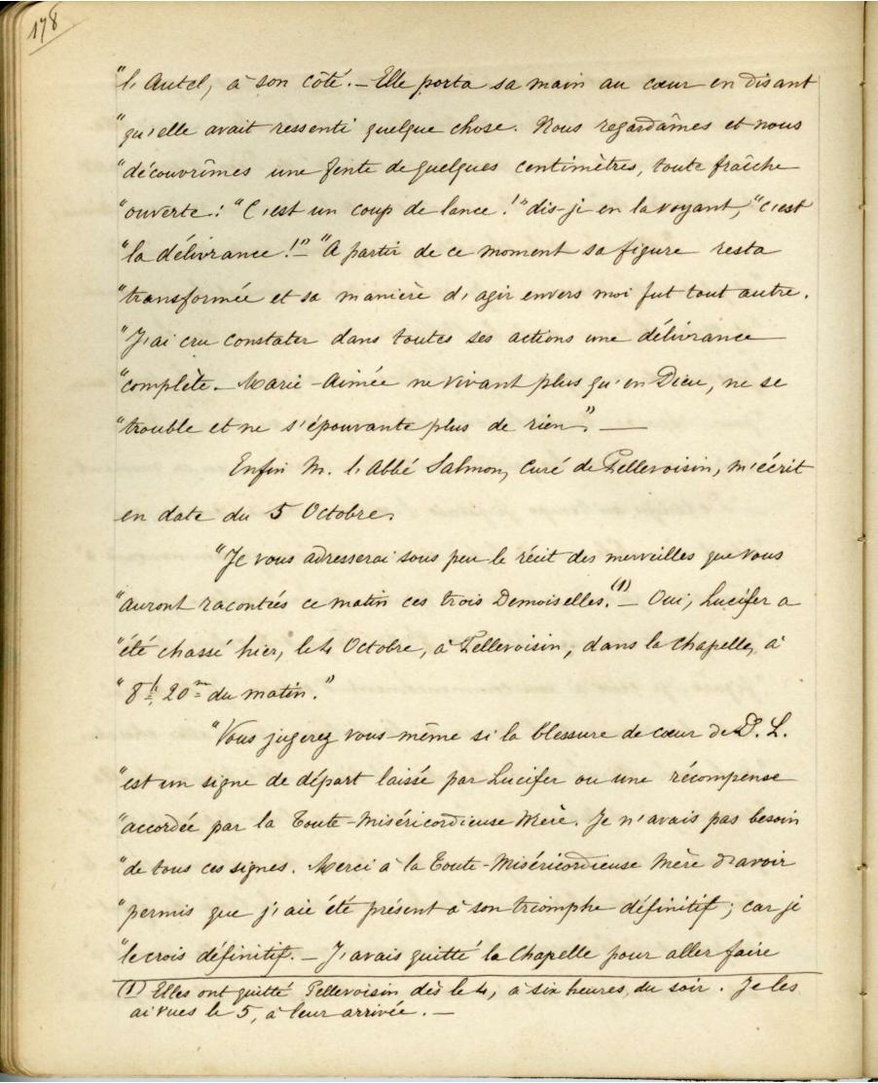 178
"l'Autel, à son côté. — Elle porta sa main au cœur en disant
"qu'elle avait ressenti quelque chose. Nous regardâmes et nous
"découvrîmes une fente de quelques centimètres, toute fraîche
"ouverte: "C'est un coup de lance!" dis-je en la voyant, "c'est
"la délivrance!" — "A partir de ce moment sa figure resta
"transformée et sa manière d'agir envers moi fut tout autre.
"J'ai cru constater dans toutes ses actions une délivrance
"complète. Marie-Aimée ne vivant plus qu'en Dieu, ne se
"trouble et ne s'épouvante plus de rien." —
Enfin M. l'Abbé Salmon, curé de Pellevoisin, m'écrit
en date du 5 Octobre.
"Je vous adresserai sous peu le récit des merveilles que vous
"auront racontées ce matin ces trois Demoiselles.(1) — Oui, Lucifer a
"été chassé hier, le 4 Octobre, à Pellevoisin, dans la Chapelle, à
"8h 20m du matin."
"Vous jugerez vous-même si la blessure de cœur de D. L.
"est un signe de départ laissé par Lucifer ou une récompense
"accordée par la Toute-Miséricordieuse Mère. Je n'avais pas besoin
"de tous ces signes. Merci à la Toute-Miséricordieuse Mère d'avoir
"permis que j'aie été présent à son triomphe définitif; car je
"le crois définitif. — J'avais quitté la Chapelle pour aller faire
(1) Elles ont quitté Pellevoisin dès le 4, à six heures du soir. Je les
ai vues le 5, à leur arrivée. —